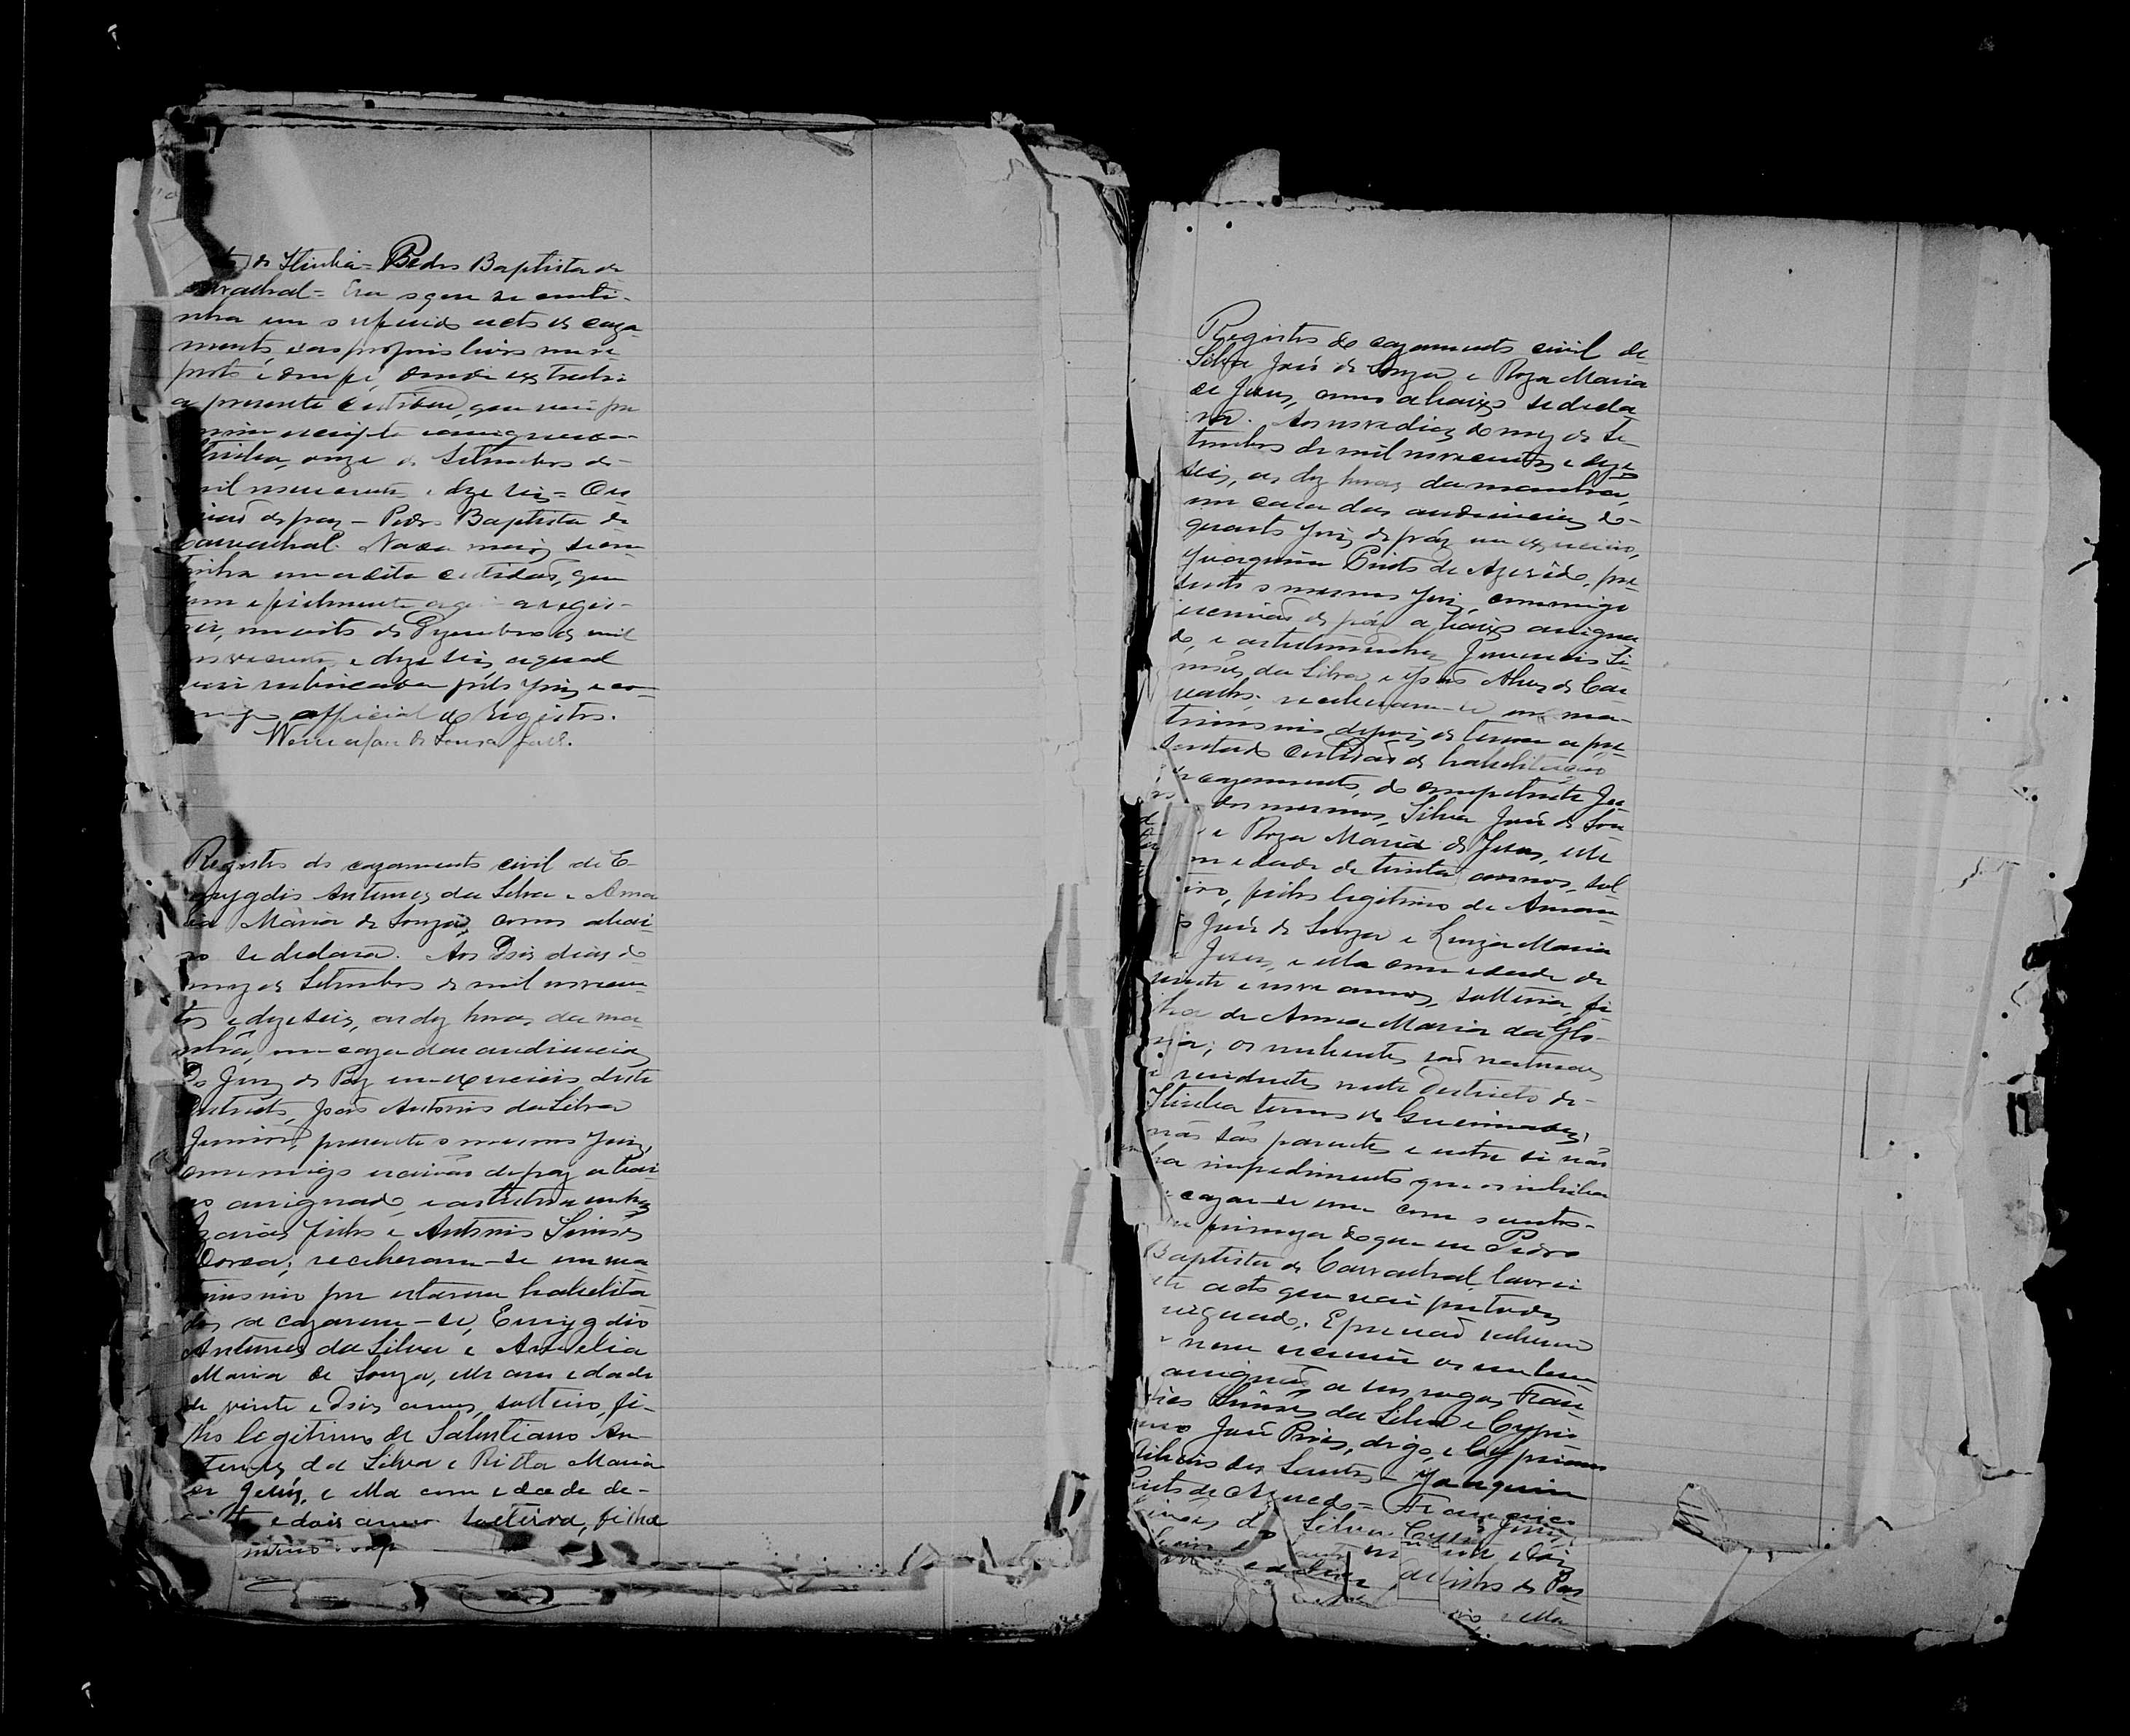 de Itiuba = Pedro Baptista de
Carvalhal = Era o que se conti-
nha em o referido acto de caza-
mento, e aos proprios livros me re-
porto e dou fé, donde extrahi
a presente certidão, que vai por
mim escripta e assignada
Itiuba, onze de Setembro de
mil novecentos e dezeseis = Es-
crivão de paz - Pedro Baptista de
Carvalhal. Nada mais se con-
tinha em a dita certidão, que
bem e fielmente aqui a regis-
trei, em oito de Dezembro de mil
novecentos e dezeseis, a qual
vai rubricada pelo Juiz e co-
migo official do Registro.
de Souza
Registro do cazamento civil de E-
mygdio Antunes da Silva e Ama
lia Maria de Souza, como abai-
xo se declara. Aos Dois dias do
mez de Setembro de mil novecen-
tos e dezeseis, as dez horas da ma-
nhã, em caza das audiencias
Do Juiz de Paz em exercicio deste
districto, João Antonio da Silva
Junior, presente o mesmo Juiz,
commigo escrivão de paz abai-
xo assignado, e as testemunhas
Filho e Antonio Simões
Dorea; receberam-se em ma-
trimonio por estarem habilita
dos a cazarem-se, Emygdio
Antunes da Silva e Amelia
Maria de Souza, elle com edade
de vinte e dois annos, solteiro, fi-
lho legitimo de Salustiano An-
tunes da Silva e Ritta Maria
de Jesus, e ella com edade de-
vinte e dois annos solteira, filha
Registro do cazamento civil de
Silva José de Souza e Roza Maria
de Jesus, como abaixo se decla-
ra. Aos nove dias do mez de Se-
tembro de mil novecentos e deze
seis, as dez horas da manhã,
em caza das audiencias do-
quarto Juiz de páz em exercicio,
Joaquim Pinto de Azevêdo, pre-
sente o mesmo Juiz, commigo
escrivão de páz abaixo assigna-
do, e as testemunhas Si-
mões da Silva, e Alves de Car-
valho; receberam-se em ma-
trimonio depois de terem apre-
sentado certidão de habilitação
de cazamento, do competente Jui
os mesmos, Silva José de Sou-
za e Roza Maria de Jesus, elle
com edade de trinta annos, sol-
teiro, filho legitimo de Aman-
cio José de Souza e Luiza Maria
de Jesus, e ella com edade de
vinte e nove annos, solteira, fi-
lha de Anna Maria da Glo-
ria; os nubentes são naturaes
e residentes neste Districto de-
Itiuba termo de Queimadas;
não são parentes e entre si não
ha impedimento que os inhiba
de cazar-se um com o outro.
Em firmeza do que eu Pedro
Baptista de Carvalhal, lavrei
este acto que vai por todos
assignado. E por não saberem
ler nem escrever os nubentes
assignão a seus rogos, Fran-
cisco Simões da Silva e Cypria-
no José Pires, digo, e Cypriano
dos Santos - Joaquim
Pinto de Azevedo = Francisco
Simões da Silva
e dois
filho de
e ella